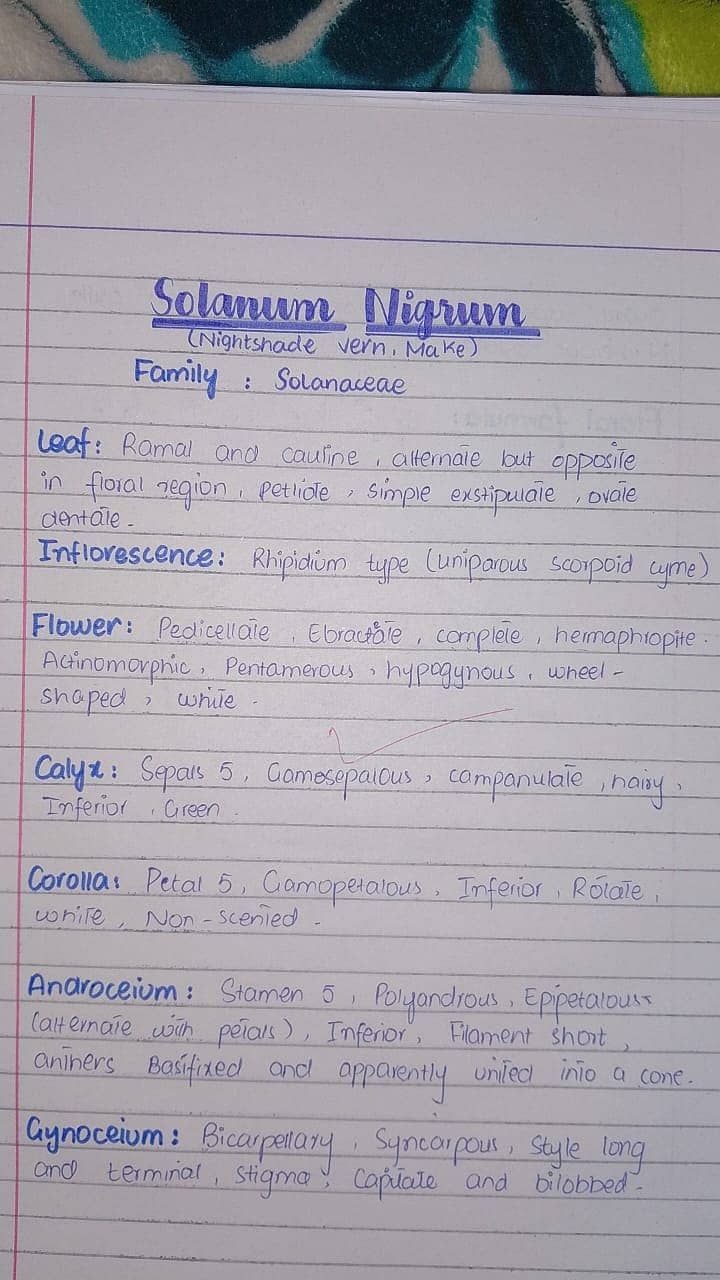 Solanum Nigrum
(Nightshade vern. Make)
Family : Solanaceae
Leaf: Ramal and cauline, alternate but opposite
in floral region, petliote, simple exstipulate, ovate
dentate.
Inflorescence: Rhipidium type (uniparous scorpoid cyme)
Flower: Pedicellate, Ebractate, complete, hermaphropite.
Actinomorphic, Pentamerous, hypogynous, wheel-
shaped, white.
Calyx: Sepals 5, Gamosepalous, campanulate, hairy,
Inferior, Green.
Corolla: Petal 5, Gamopetalous, Inferior, Rotate,
white, Non-scented.
Androceium: Stamen 5, Polyandrous, Epipetalous
(alternate with petals), Inferior, Filament short,
anthers Basifixed and apparently united into a cone.
Gynoceium: Bicarpellary, Syncarpous, Style long
and terminal, stigma, Capitate and bilobbed.